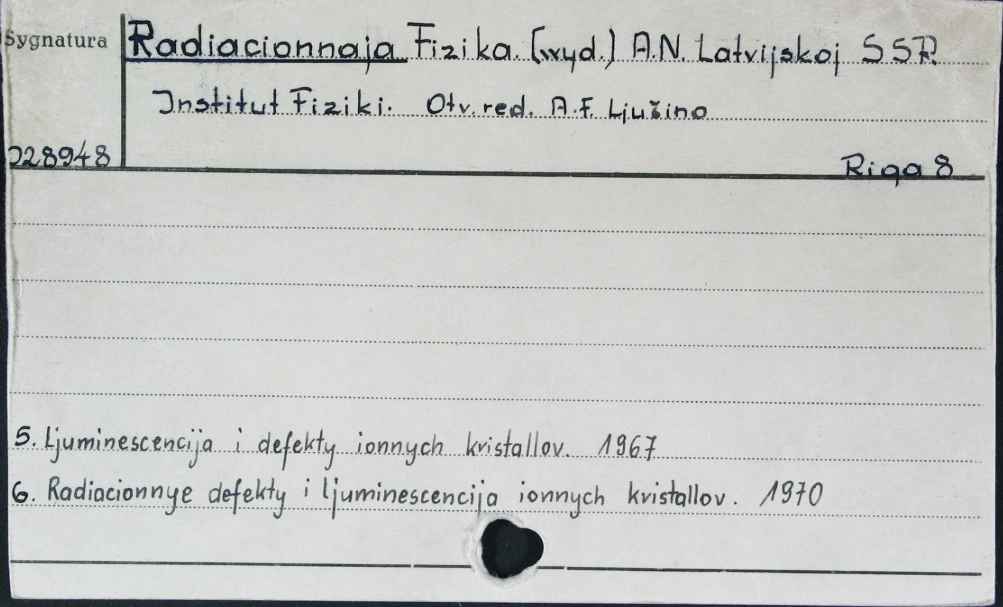 Sygnatura
Radiacionnaja Fizika. (wyd.) A.N. Latvijskoj SSR.
Institut Fiziki. Otv. red. A.F. Ljužino
228948
Riga 8
5. Ljuminescencija i defekty ionnych kristallov. 1967
6. Radiacionnye defekty i ljuminescencija ionnych kristallov. 1970